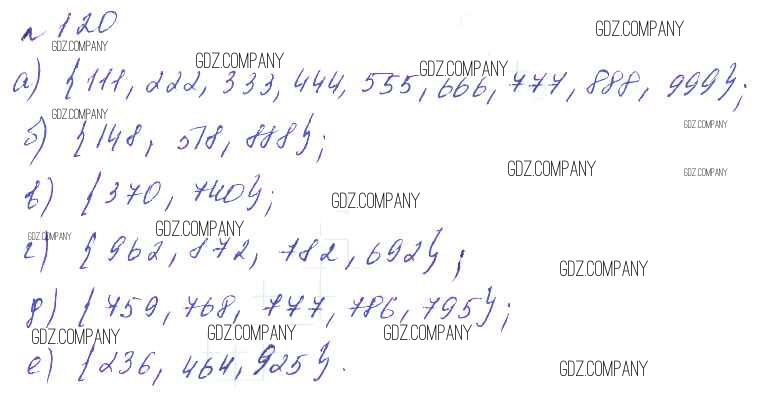 № 120
GDZ.COMPANY GDZ.COMPANY
GDZ.COMPANY GDZ.COMPANY
а) {111, 222, 333, 444, 555, 666, 777, 888, 999};
GDZ.COMPANY GDZ.COMPANY
б) {148, 518, 888};
GDZ.COMPANY GDZ.COMPANY
в) {370, 740};
GDZ.COMPANY
GDZ.COMPANY GDZ.COMPANY
г) {962, 872, 782, 692};
GDZ.COMPANY
д) {759, 768, 777, 786, 795};
GDZ.COMPANY GDZ.COMPANY GDZ.COMPANY
е) {236, 464, 925}.
GDZ.COMPANY